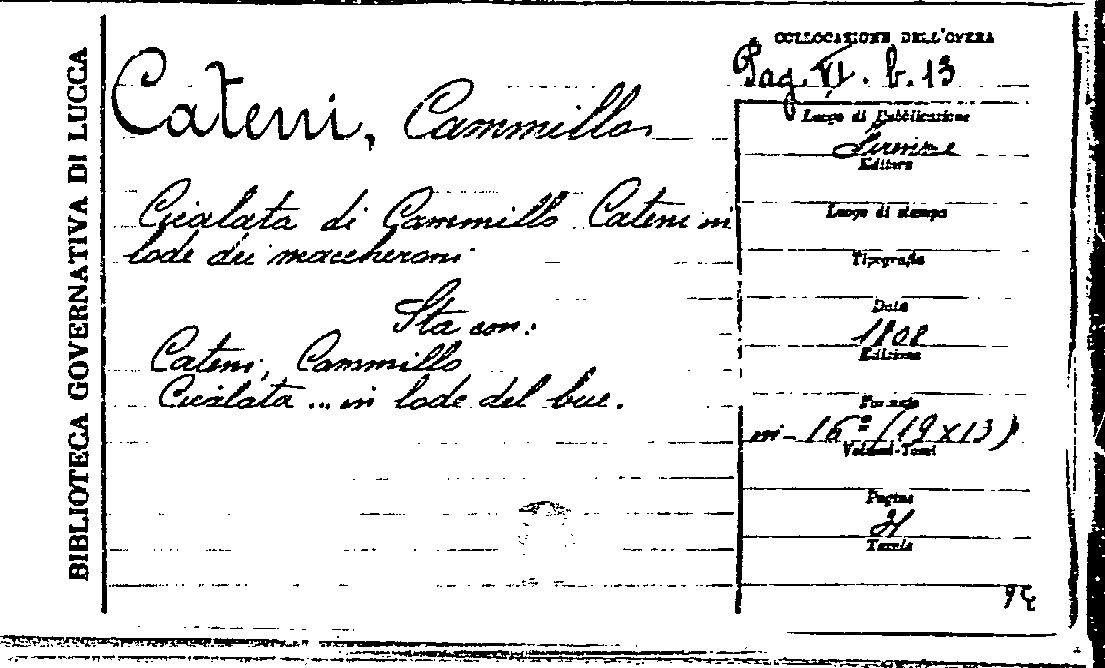 BIBLIOTECA GOVERNATIVA DI LUCCA
COLLOCAZIONE DELL'OPERA
Pag. VI. b. 13
Cateni, Cammillo
Cicalata di Cammillo Cateni in
lode dei maccheroni
Sta con:
Cateni, Cammillo
Cicalata ... in lode del bue.
Luogo di Pubblicazione
Firenze
Editore
Luogo di stampa
Tipografia
Data
1808
Edizione
Formato
in- 16° (19x13)
Volumi-Tomi
Pagine
Tavole